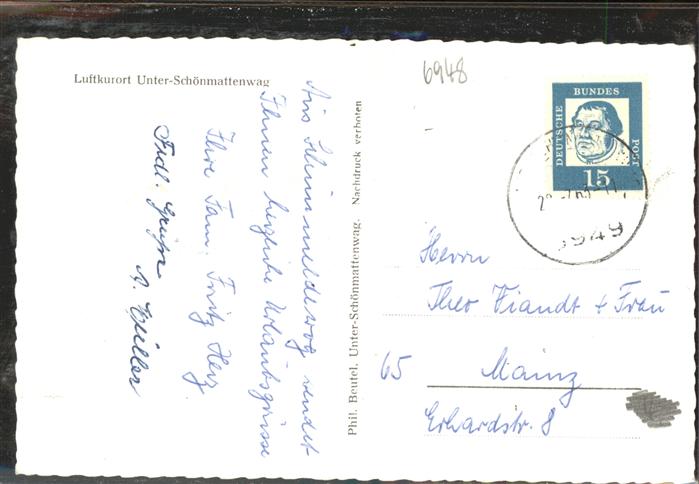 Luftkurort Unter-Schönmattenwag
Aus Schimmeldewog sendet
Ihnen herzliche Urlaubsgrüsse
Ihre Fam. Fritz Herz
Frdl. Grüße
A. Eller
Phil. Beutel, Unter-Schönmattenwag. Nachdruck verboten
6948
DEUTSCHE BUNDES POST
15
6949
Herrn
Theo Viandt + Frau
65 Mainz
Erhardstr. 8